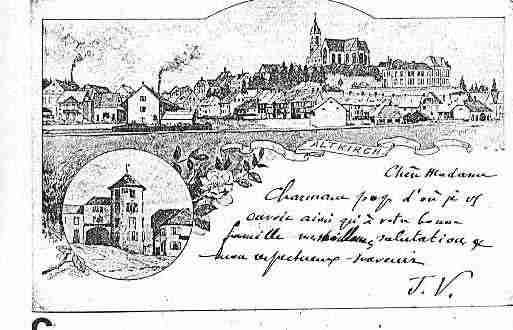 ALTKIRCH
Chère Madame
Charmant pays d'où je vs
envoie ainsi qu'à votre bonne
famille meilleures salutations &
mon respectueux souvenir
J. V.
C